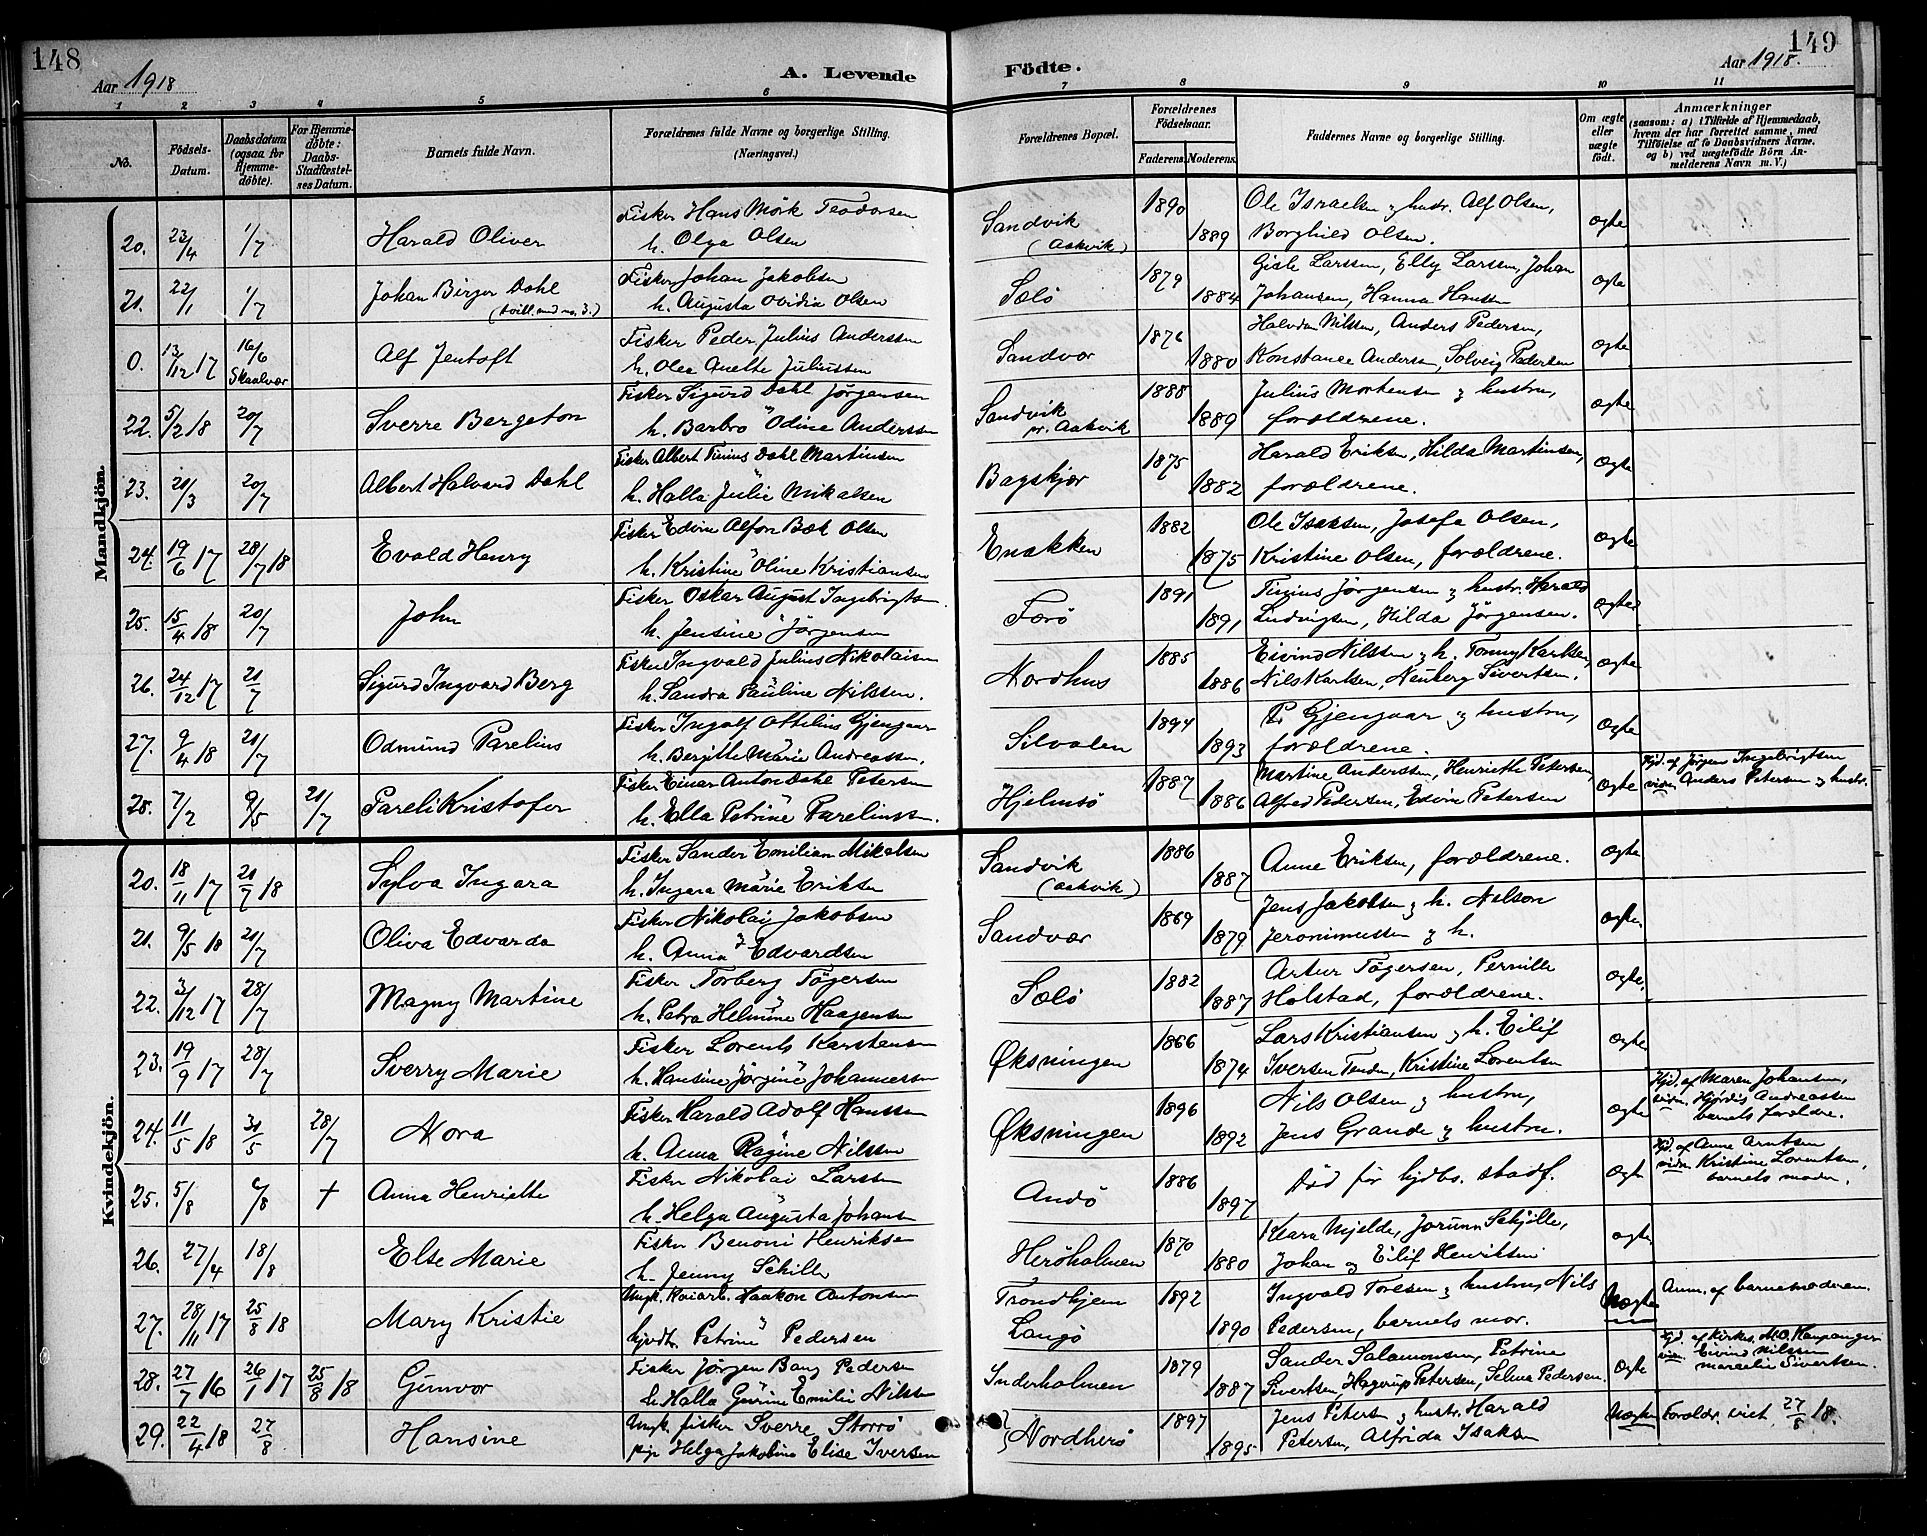 148
149
Aar 1918
A. Levende Födte.
Aar 1918.
1 2 3 4 5 6 7 8 9 10 11
No.
Födsels-
Datum.
Daabsdatum
(ogsaa for
Hjemme-
döbte).
For Hjemme-
döbte:
Daabs-
Stadfæstel-
ses Datum.
Barnets fulde Navn.
Forældrenes fulde Navne og borgerlige Stilling.
(Næringsvei.)
Forældrenes Bopæl.
Forældrenes
Födselsaar.
Faderens. Moderens.
Faddernes Navne og borgerlige Stilling.
Om ægte
eller
uægte
födt.
Anmærkninger
(saasom: a) i Tilfælde af Hjemmedaab,
hvem der har forrettet samme, med
Tilföielse af to Daabsvidners Navne,
og b) ved uægtefödte Börn An-
melderens Navn m. V.)
Mandkjön.
20. 23/4 1/7 Harald Oliver
Fisker Hans Mörk Teodorsen
h. Olga Olsen
Sandvik
(Aakvik)
1890 1889
Ole Israelsen g hustr. Alf Olsen,
Borghild Olsen.
ægte
21. 22/1 1/7 Johan Birger Dahl
(tvill. med no. 3.)
Fisker Johan Jakobsen
h. Augusta Ovidia Olsen
Sölö
1879 1884
Gisle Larssen, Elly Larssen, Johan
Johansen, Hanna Hanssen
ægte
0. 13/12 17 16/6 Skaalvær Alf Jentoft
Fisker Peder Julius Anderssen
h. Olea Anette Juliussen
Sandvær
1876 1880
Halvdan Nilssen, Anders Pedersen,
Konstance Andersen, Solveig Pedersen
ægte
22. 5/2 18 20/7 Sverre Bergeton
Fisker Sigurd Dahl Jörgensen
h. Barbro Odine Anderssen
Sandvik
pr. Aakvik
1888 1889
Julius Mortensen g hustru,
forældrene.
ægte
23. 20/3 20/7 Albert Halvard Dahl
Fisker Albert Tinius Dahl Martinsen
h. Halla Julie Mikalsen
Bagskjær
1875 1882
Harald Eriksen, Hilda Martinsen,
forældrene.
ægte
24. 19/6 17 28/7 18 Evald Henry
Fisker Edvin Alfon Bæk Olsen
h. Kristine Oline Kristiansen
Enakken
1882 1875
Ole Isaksen, Josefa Olsen,
Kristine Olsen, forældrene.
ægte
25. 15/4 18 20/7 John
Fisker Oskar August Ingebrigts.
h. Jensine Jörgensen
Forö
1891 1891
Tinius Jörgensen g hustr. Harald
Ludvigsen, Hilda Jörgensen.
ægte
26. 24/12 17 21/7 Sigurd Ingvard Berg
Fisker Ingvald Julius Nikolaisen
h. Sandra Pauline Nilssen.
Nordhus
1885 1886
Eivind Nilssen g h. Tonny Karlsen,
Nils Karlsen, Neuberg Sivertsen.
ægte
27. 9/4 18 21/7 Odmund Parelius
Fisker Ingolf Ottelius Gjengaar
h. Bergitte Marie Andreassen.
Silvalen
1894 1893
P. Gjengaar g hustru,
forældrene.
ægte
28. 7/2 9/5 21/7 Pareli Kristofer
Fisker Einar Anton Dahl Petersen
h. Ella Petrine Pareliussen.
Hjelmsö
1887 1886
Martine Anderssen, Henriette Petersen,
Alfred Pedersen, Edvin Petersen
ægte
Hjd. af Jörgen Ingebrigtsen
vidn. Anders Petersen g hustr.
Kvindekjön.
20. 18/11 17 21/7 18 Sylva Ingara
Fisker Sander Emilian Mikalsen
h. Ingara Marie Eriksen
Sandvik
(Aakvik)
1886 1887
Anne Eriksen, forældrene.
ægte
21. 9/5 18 21/7 Oliva Edvarda
Fisker Nikolai Jakobsen
h. Anna Edvardsen
Sandvær
1869 1879
Jens Jakobsen g h. Nilson
Jeronimussen g h.
ægte.
22. 3/12 17 28/7 Magny Martine
Fisker Torberg Tögersen
h. Petra Helmine Haagensen
Sölö
1882 1887
Artur Tögersen, Pernille
Holstad, forældrene.
ægte.
23. 19/9 17 28/7 Sverry Marie
Fisker Lorents Karstensen
h. Hansine Jörgine Johannessen
Øksningen
1866 1874
Lars Kristiansen g h. Eilif
Iversen Tenden, Kristine Lorentsen
ægte.
24. 11/5 18 31/5 28/7 Nora
Fisker Harald Adolf Hanssen
h. Anna Ragine Nilssen
Øksningen
1896 1892
Nils Olsen g hustru,
Jens Grande g hustru.
ægte
Hjd. af Maren Johansen,
vidn. Hjördis Andreassen
barnets forældre.
25. 5/8 6/8 + Anna Henriette
Fisker Nikolai Larssen
h. Helga Augusta Johansen
Andö
1886 1897
Död för hjdbs. stadf.
ægte
Hjd. af Anne Arntsen
vidn. Kristine Lorentsen,
barnets moder.
26. 27/4 18/8 Else Marie
Fisker Benoni Henriksen
h. Jenny Schille
Heröholmen
1870 1880
Klara Mjelde, Jorunn Schjille,
Johan g Eilif Henriksen
ægte.
27. 28/11 17 25/8 18 Mary Kristie
Ungk. Kaiarb. Haakon Antonsen
hjvdtr. Petrine Pedersen
Trondhjem
Langö
1892 1890
Ingvald Toresen g hustru, Nils
Pedersen, barnets mor.
Uægte
Anm. af barnemoderen.
28. 27/7 16 26/1 17 25/8 18 Gunvor
Fisker Jörgen Bang Pedersen
h. Halla Gurine Emilie Nilssen
Inderholmen
1879 1887
Sander Salamonsen, Petrine
Sivertsen, Hagerup Petersen, Selma Pedersen.
ægte
Hjd. af kirkes. M.O. Kaupanger
vidn. Eivind Nilssen
Marselie Sivertsen.
29. 22/4 18 27/8 Hansine
Ungk. fisker Sverre Storrö
pige Helga Jakobine Elise Iversen
Nordherö
1897 1895
Jens Petersen g hustr. Harald
Petersen, Alfrida Isaksen
Uægte
Forældr. viet 27/8 18.